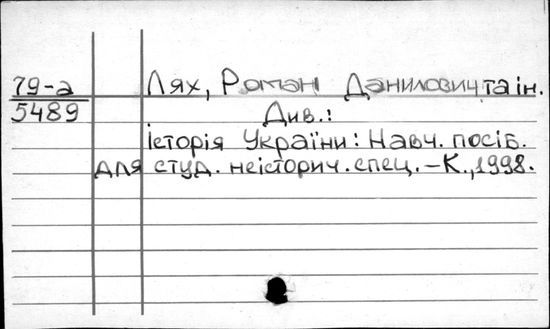 79-а
5489
Лях, Роман Данилович та ін.
Див.:
історія України: Навч. посіб.
для студ. неісторич. спец. – К., 1998.